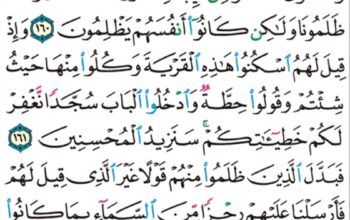 ظَلَمُونَا وَلَٰكِن كَانُوٓا۟ أَنفُسَهُمْ يَظْلِمُونَ ١٦٠ وَإِذْ
قِيلَ لَهُمُ ٱسْكُنُوا۟ هَٰذِهِ ٱلْقَرْيَةَ وَكُلُوا۟ مِنْهَا حَيْثُ
شِئْتُمْ وَقُولُوا۟ حِطَّةٌ وَٱدْخُلُوا۟ ٱلْبَابَ سُجَّدًا نَّغْفِرْ
لَكُمْ خَطِيٓـَٰٔتِكُمْ ۚ سَنَزِيدُ ٱلْمُحْسِنِينَ ١٦١
فَبَدَّلَ ٱلَّذِينَ ظَلَمُوا۟ مِنْهُمْ قَوْلًا غَيْرَ ٱلَّذِى قِيلَ لَهُمْ
فَأَرْسَلْنَا عَلَيْهِمْ رِجْزًا مِّنَ ٱلسَّمَآءِ بِمَا كَانُوا۟